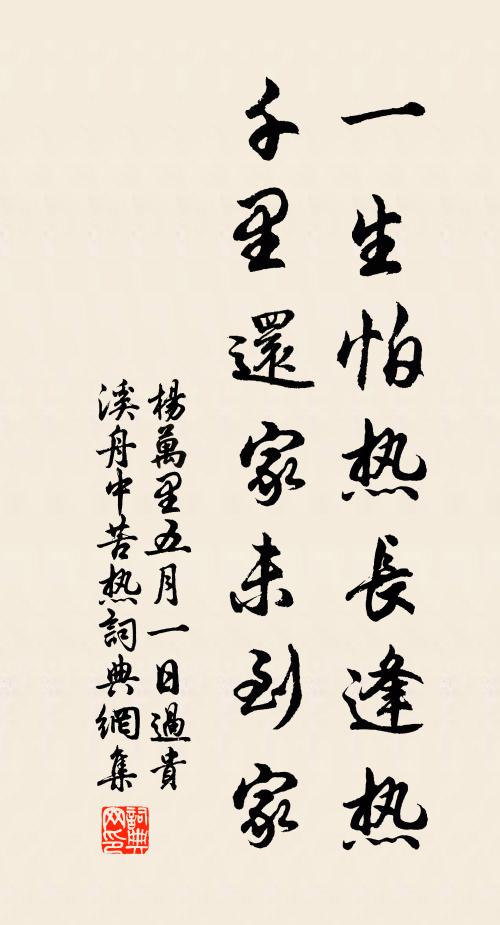 一生怕热長逢热
千里還家未到家
楊萬里五月一日過貴
溪舟中苦热詞典網集
詞典
网印